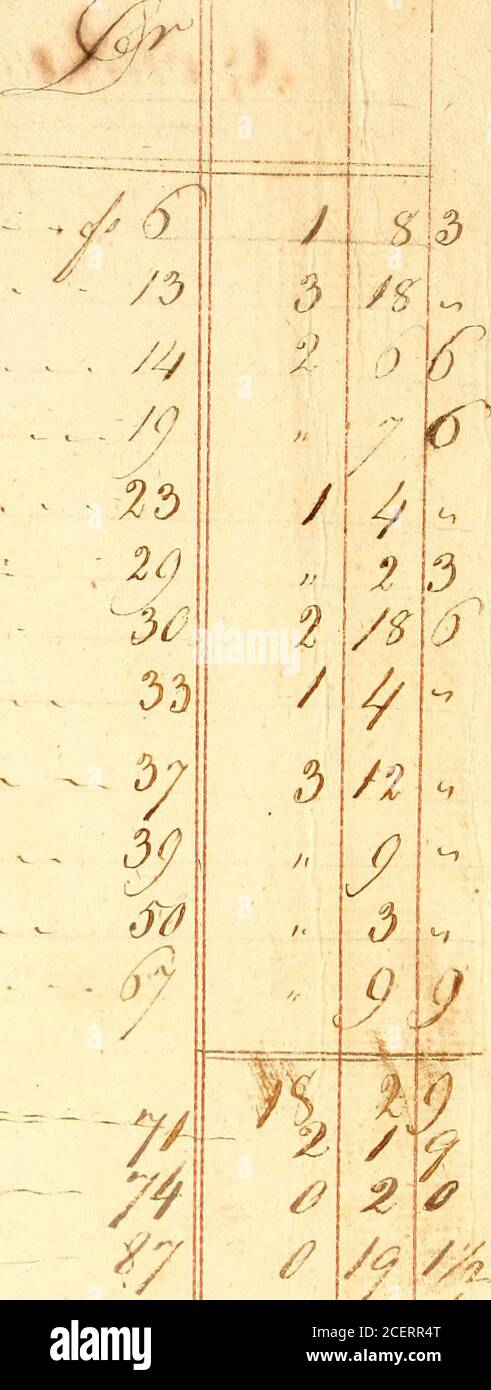 Dr
fo 6 1 8 3
13 3 18 "
14 2 6 6
19 " 7 6
23 1 4 "
29 " 2 3
30 2 18 6
33 1 4 "
37 3 12 "
39 " 9 "
50 " 3 "
67 " 9 9
18 2 9
71 2 1 9
74 0 2 0
87 0 19 1½
alamy
Image ID: 2CERR4T
www.alamy.com